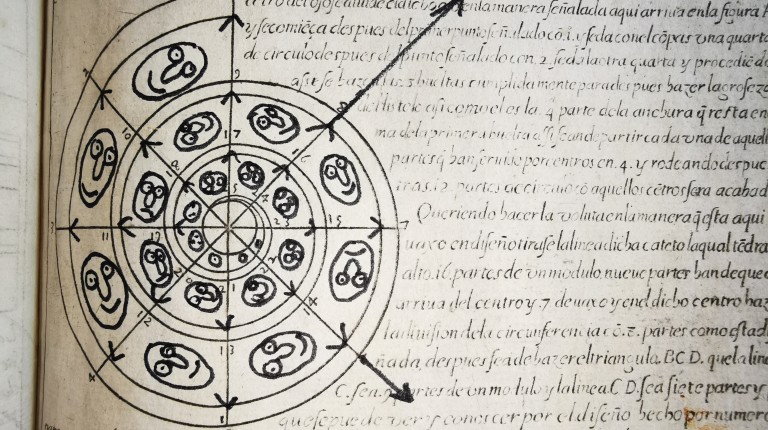 enla manera señalada aqui arriua enla figura
y se comiẽça despues del primer punto señalado cõ .1. y se da con el cõpas vna quarta
de circulo despues del punto señalado con .2. se da la otra quarta y procediẽdo
assi se hazen las 3 bueltas cumplidamente para despues hazer la groseza
del listelo assi como el es la .4. parte dela anchura q̃ resta en
ma dela primera buelta assi se ande partir cada vna de aquell
partes q̃ han seruido por centros en .4. y rodeando despue
tras .12. partes de circulo cõ aquellos cẽtros sera acabad
Queriendo hazer la voluta enla manera q̃ esta aqui
uaxo en diseño tirase la linea dicha cateto la qual tẽdra
alto .16. partes de vn modulo nueue partes han de que
arriua del centro y .7. de uaxo y en el dicho centro haz
la diuision dela circunferencia cõ .8. partes como esta di
ñada, despues se a de hazer el triangulo. BCD. que la lin
C. sea .9. partes de vn modulo y la linea CD. sea siete partes y
que se puede ver y conoscer por el diseño hecho por numero